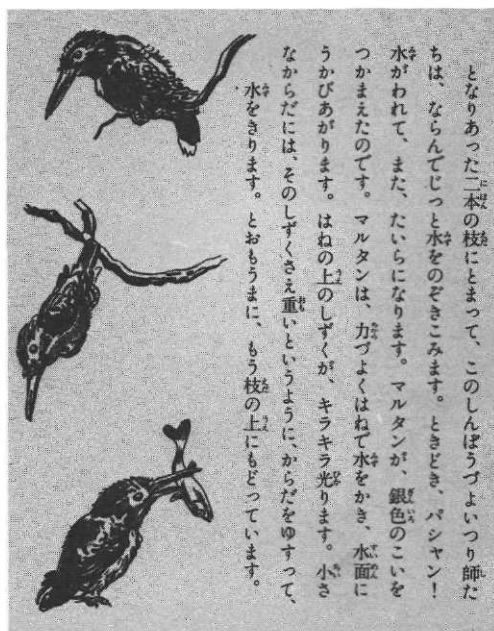 となりあった二本の枝にとまって、このしんぼうづよいつり師た
ちは、ならんでじっと水をのぞきこみます。ときどき、パシャン！
水がわれて、また、たいらになります。マルタンが、銀色のこいを
つかまえたのです。マルタンは、力づよくはねで水をかき、水面に
うかびあがります。はねの上のしずくが、キラキラ光ります。小さ
なからだには、そのしずくさえ重いというように、からだをゆすって、
水をきります。とおもうまに、もう枝の上にもどっています。